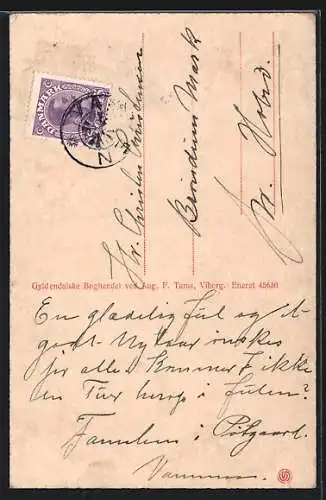 DANMARK
Hr. Christen Christensen
Mark
pr. Hobro.
Gyldendalske Boghandel ved Aug. F. Tams, Viborg. Eneret 45630
En glædelig Jul og et
godt Nytaar ønskes
for alle. Kommer I ikke
en Tur herop i Julen?
Familien i